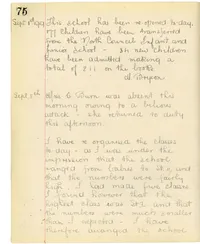 75
Sept 1st 1949 This school has been re-opened to-day.
77 children have been transferred
from the North Council Infant and
Junior School - 24 new children
have been admitted making a
total of 211 on the books
Sept 5th Miss was absent this
morning owing to a bilious
attack - she returned to duty
this afternoon
I have re organised the classes
to day - as I was under the
impression that the school
ranged from babies to and
that the numbers were fairly
high. I had made five classes
I found however that the
highest class was and that
the numbers were much smaller
than I expected. I have
therefore arranged the school